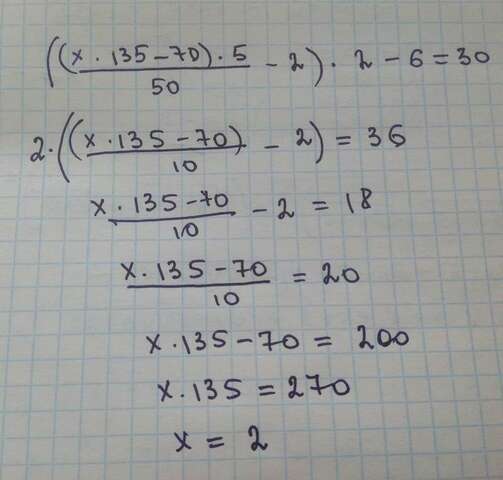 ((x · 135 - 70) · 5 / 50 - 2) · 2 - 6 = 30
2 · ((x · 135 - 70) / 10 - 2) = 36
x · 135 - 70 / 10 - 2 = 18
x · 135 - 70 / 10 = 20
x · 135 - 70 = 200
x · 135 = 270
x = 2